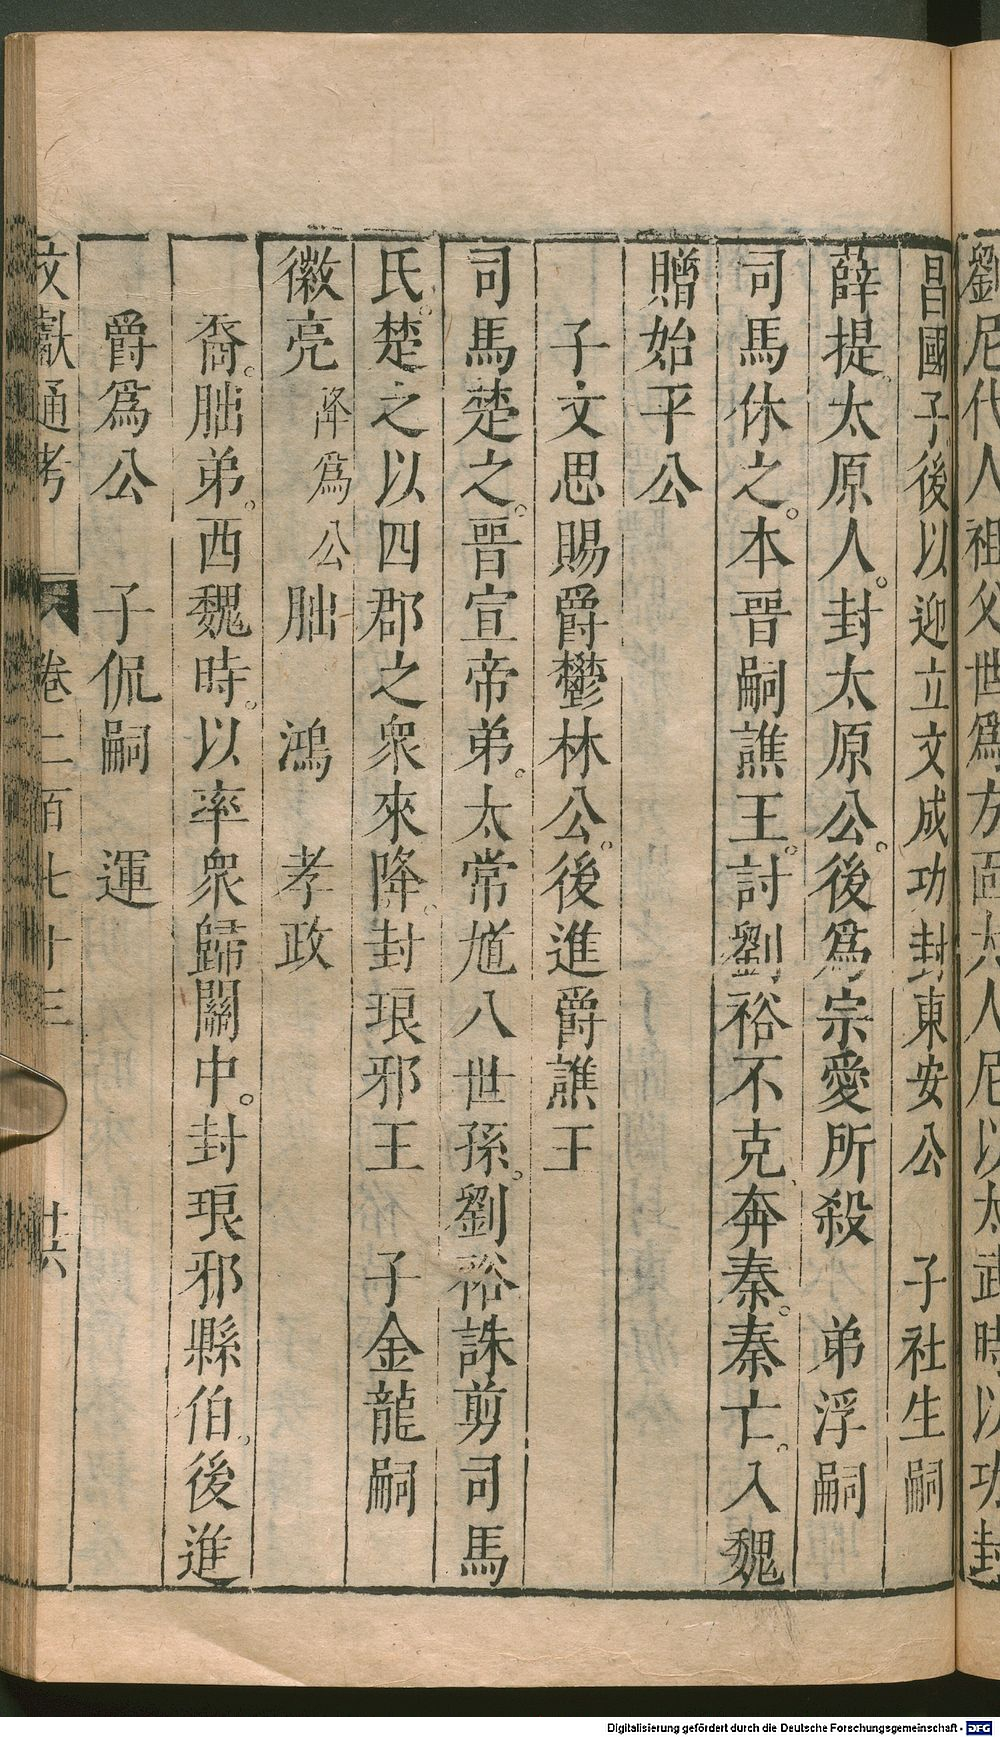 劉尼代人祖父世爲方面大人尼以太武時以功封
昌國子後以迎立文成功封東安公　子社生嗣
薛提太原人。封太原公。後爲宗愛所殺　弟浮嗣
司馬休之。本晉嗣譙王。討劉裕不克、奔秦。秦亡。入魏
贈始平公
子文思賜爵鬱林公。後進爵譙王
司馬楚之。晉宣帝弟。太常馗八世孫。劉裕誅剪司馬
氏。楚之以四郡之衆來降。封琅邪王　子金龍嗣
徽亮　降爲公　朏　鴻　孝政
裔。朏弟。西魏時。以率衆歸關中。封琅邪縣伯。後進
爵爲公　子侃嗣　運
文獻通考　卷二百七十三　廿六
Digitalisierung gefördert durch die Deutsche Forschungsgemeinschaft - DFG